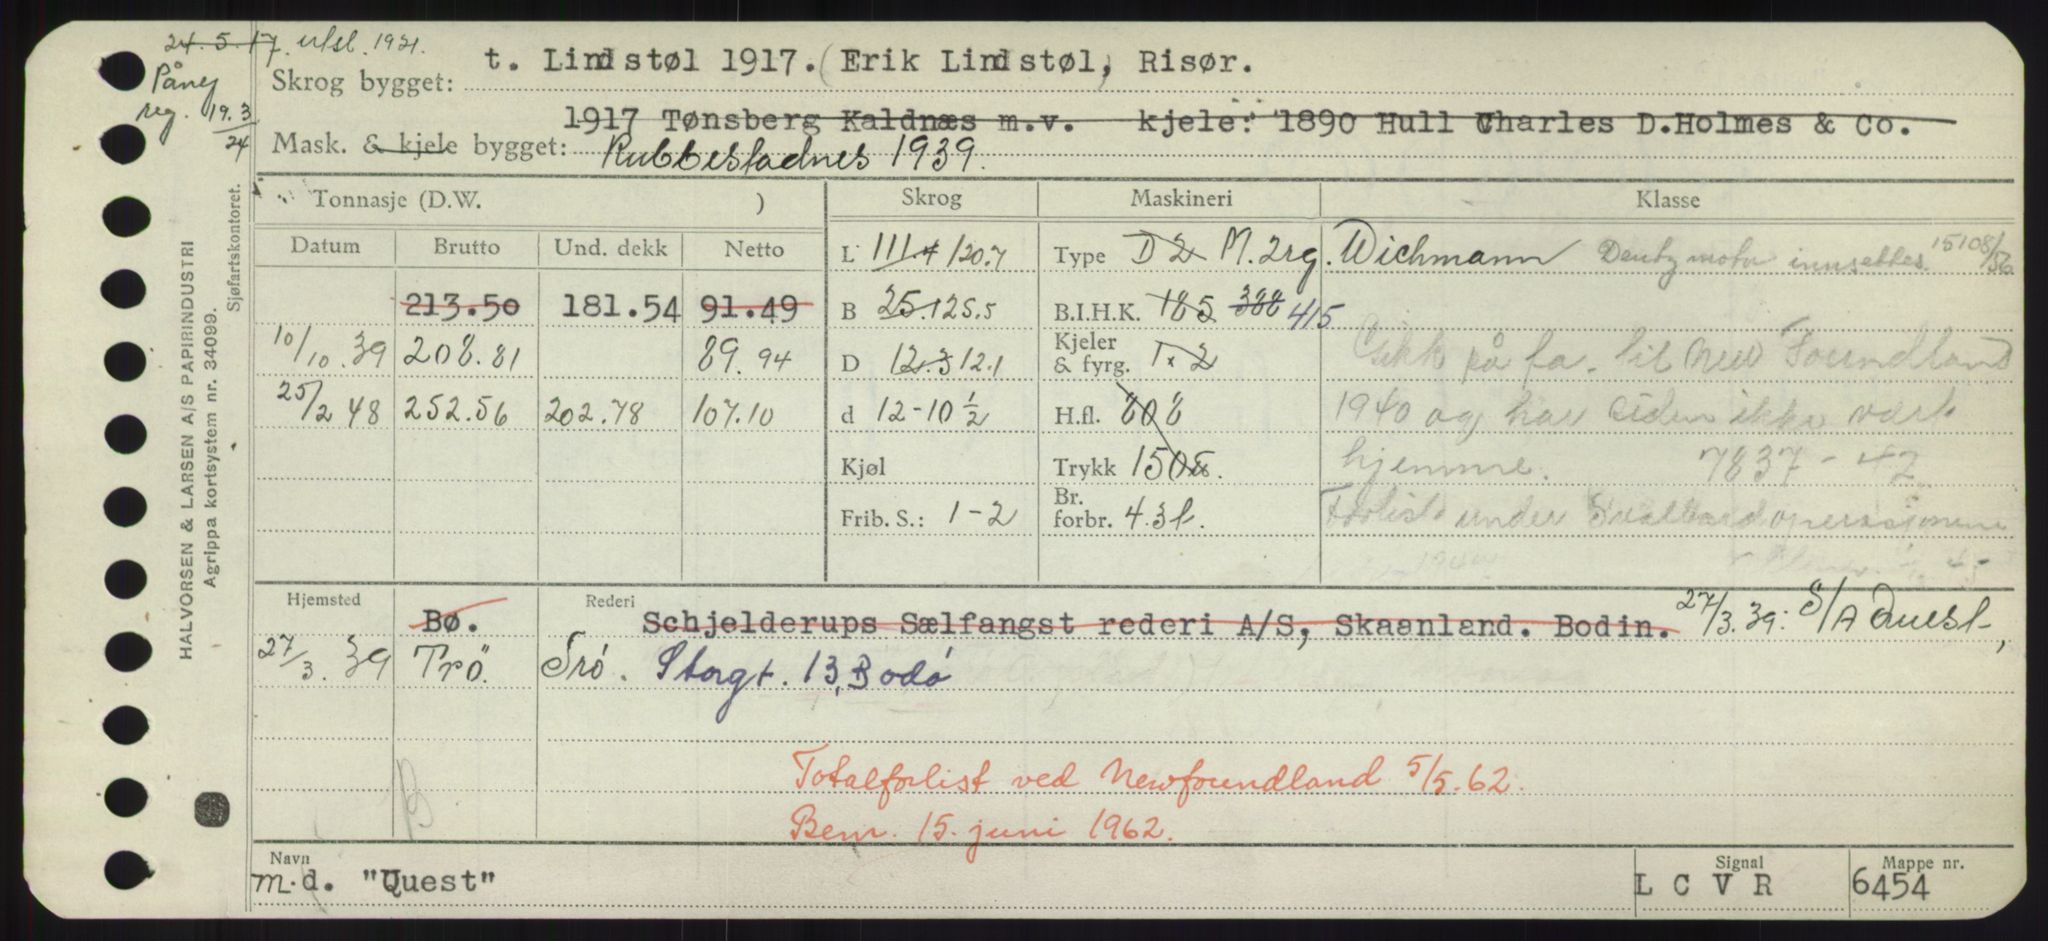 24.5.17. utsl. 1921.
Påny
reg. 19.3
24
Skrog bygget: t. Lindstøl 1917. (Erik Lindstøl, Risør.
1917 Tønsberg Kaldnæs m.v. kjele: 1890 Hull Charles D.Holmes & Co.
Mask. & kjele bygget: Rubbestadnes 1939.
Tonnasje (D.W. ) Skrog Maskineri Klasse
Datum Brutto Und. dekk Netto
L 111.4 120.7 Type D2 M. 2rg. Wichmann Deutz motor innsettes. 15108/56
213.50 181.54 91.49 B 25.1 25.5 B.I.H.K. 185 388 415
10/10.39 208.81 89.94 D 12.3 12.1 Kjeler & fyrg. 1 x 2 Gikk på fa. til New Foundland
25/2 48 252.56 202.78 107.10 d 12-10 1/2 H.fl. 808 1940 og har siden ikke vært
Kjøl Trykk 150 hjemme. 7837-42
Frib. S.: 1-2 Br. forbr. 4.3t. Forlist under Svalbard operasjonene
Hjemsted Rederi
Bø. Schjelderups Sælfangst rederi A/S, Skaanland. Bodin. 27/3.39: S/A Quest,
27/3.39 Trö. Trö. Storgt. 13, Bodö
Totalforlist ved Newfoundland 5/5.62.
Bem. 15. juni 1962.
Navn Signal Mappe nr.
m.d. "Quest" L C V R 6454
HALVORSEN & LARSEN A/S PAPIRINDUSTRI
Agrippa kortsystem nr. 34099.
Sjøfartskontoret.